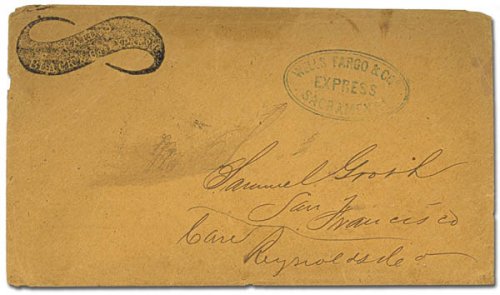 WELLS FARGO & CO.
EXPRESS
SACRAMENTO
Samuel Goosh
San Francisco
Care
Reynolds & Co